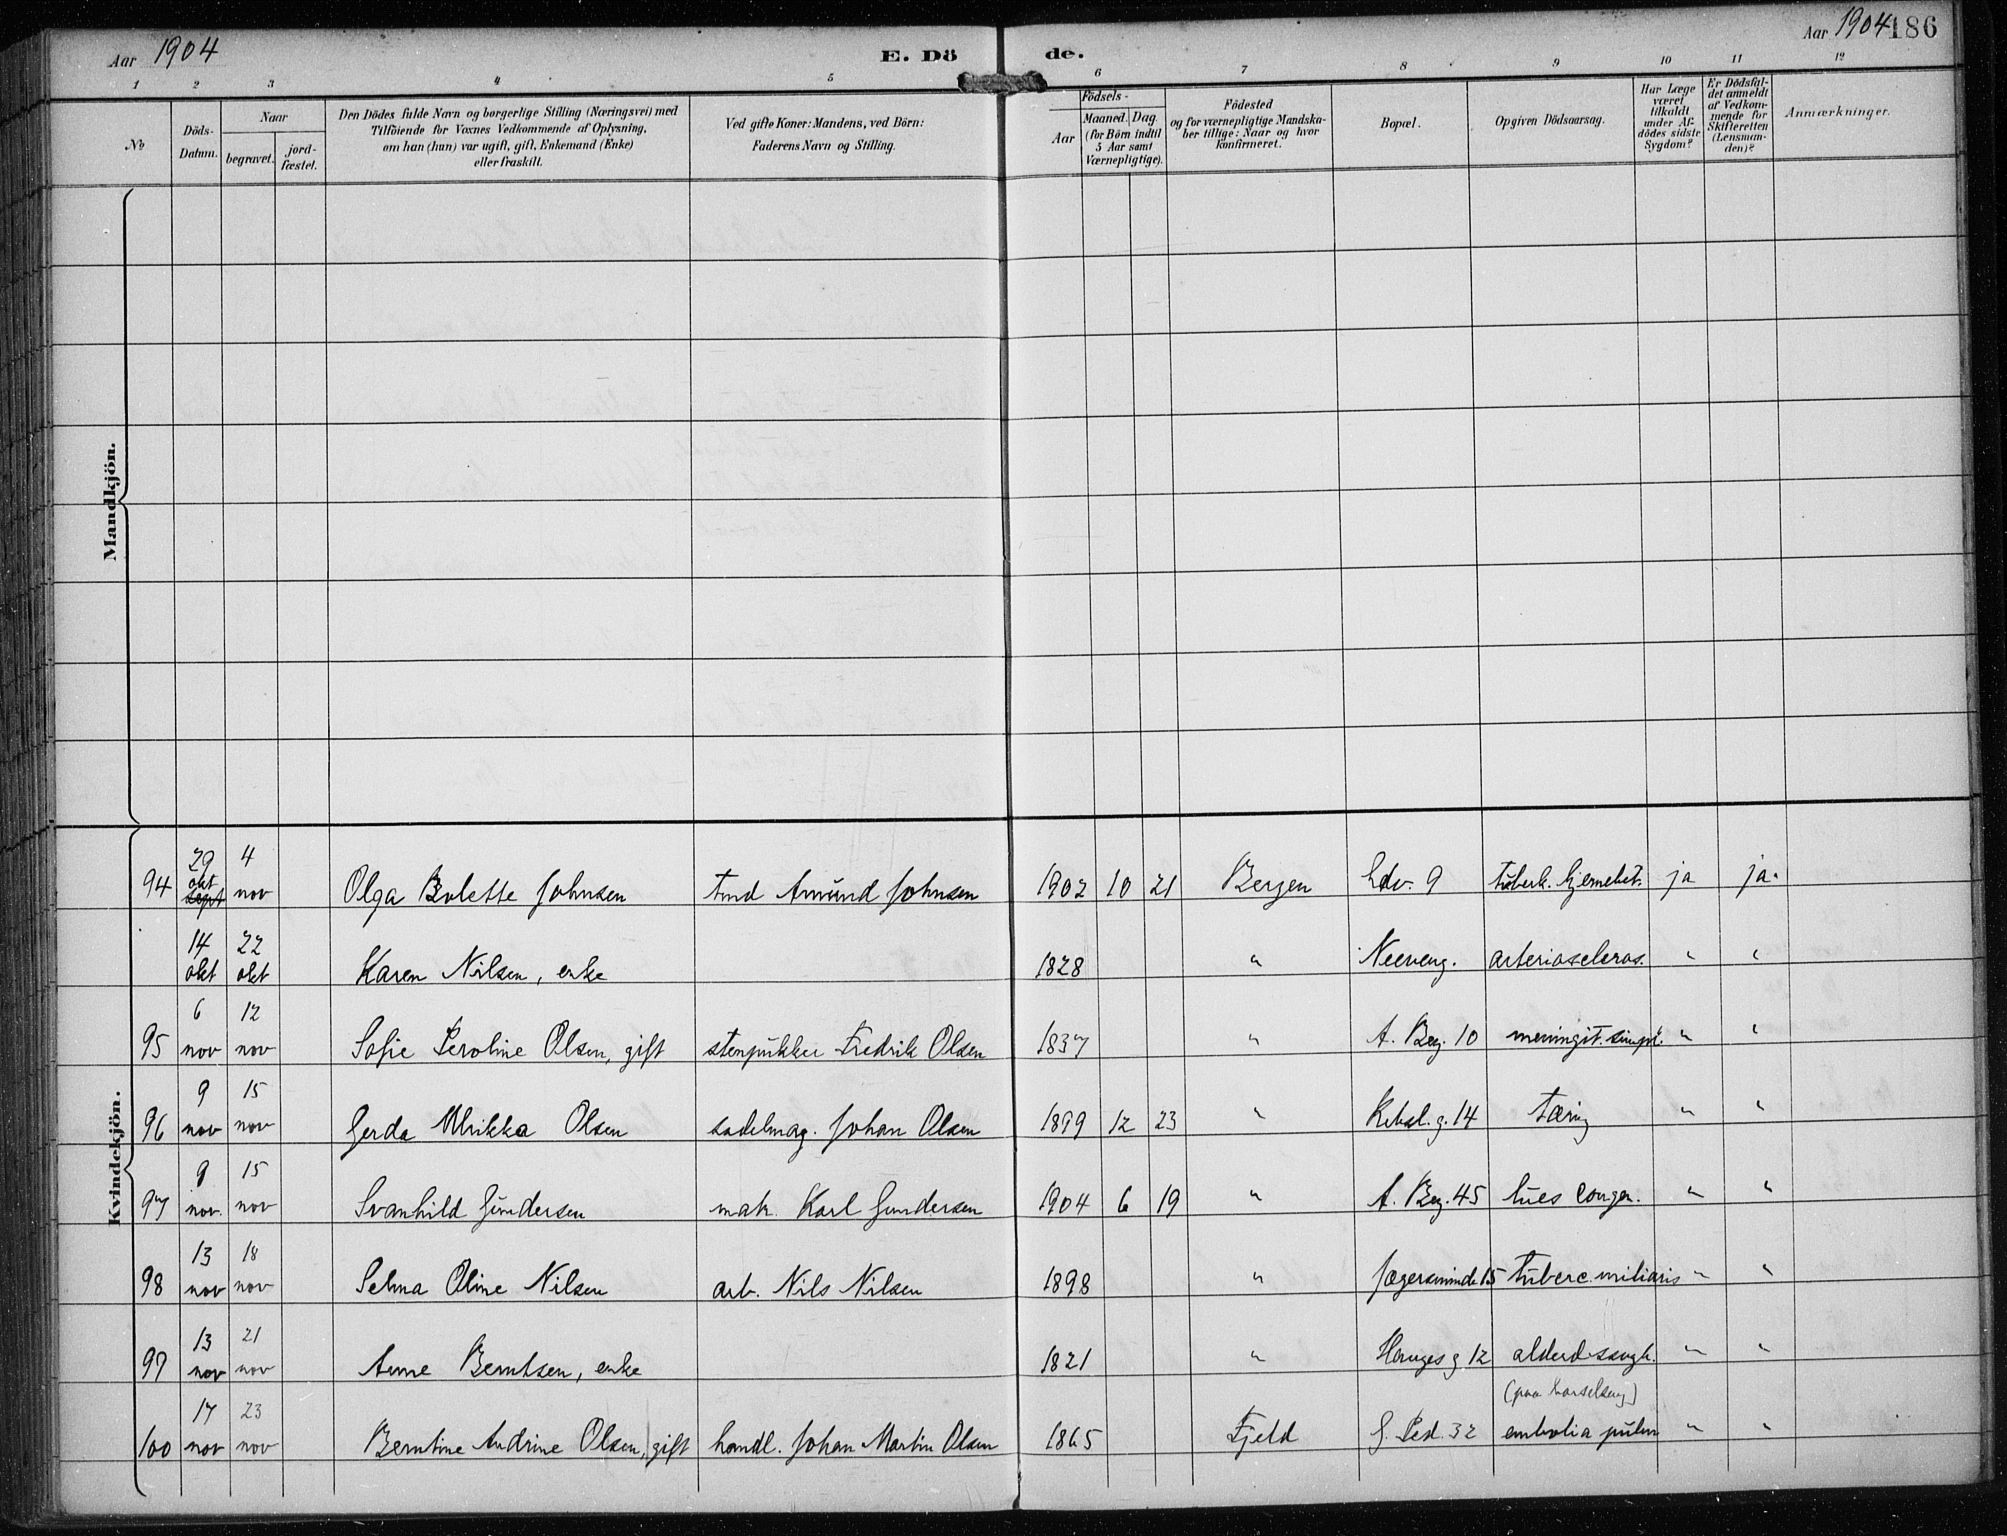 Aar 1904
E. Dö
de.
Aar 1904
186
1 2 3 4 5 6 7 8 9 10 11 12
No
Döds-
Datum.
Naar
begravet.
jord-
fæstet.
Den Dödes fulde Navn og borgerlige Stilling (Næringsvei) med
Tilföiende for Voxnes Vedkommende af Oplysning,
om han (hun) var ugift, gift, Enkemand (Enke)
eller fraskilt.
Ved gifte Koner: Mandens, ved Börn:
Faderens Navn og Stilling.
Födsels-
Aar
Maaned. Dag.
(for Börn indtil
5 Aar samt
Værnepligtige).
Födested
og for værnepligtige Mandska-
ber tillige: Naar og hvor
konfirmeret.
Bopæl.
Opgiven Dödsaarsag.
Har Læge
været
tilkaldt
under Af-
dödes sidste
Sygdom?
Er Dödsfal-
det anmeldt
af Vedkom-
mende for
Skifteretten
(Lensman-
den)?
Anmærkninger.
Mandkjön.
Kvindekjön.
94 29 okt sept 4 nov Olga Bolette Johnsen Amund Johnsen 1902 10 21 Bergen 9 tuberk. ja ja.
14 okt 22 okt Karen Nilsen, enke 1828 " arterioscleros. " "
95 6 nov 12 nov Sofie Peroline Olsen, gift stenpukker Fredrik Olsen 1837 " A. Beg. 10 meningit. simpl. " "
96 9 nov 15 nov Gerda Ulrikka Olsen sadelmag. Johan Olsen 1899 12 23 " g. 14 tæring " "
97 9 nov. 15 nov Svanhild Gundersen Karl Gundersen 1904 6 19 " A. Beg. 45 lues congen. " "
98 13 nov 18 nov Selma Oline Nilsen arb. Nils Nilsen 1898 " 15 tuberc. miliaris " "
99 13 nov 21 nov Anne Berntsen, enke 1821 " Hauges g 12 alderdsvagh. " "
(paa barselseng)
100 17 nov 23 nov Berntine Andrine Olsen, gift handl. Johan Martin Olsen 1865 Fjeld 32 embolia pulm " "